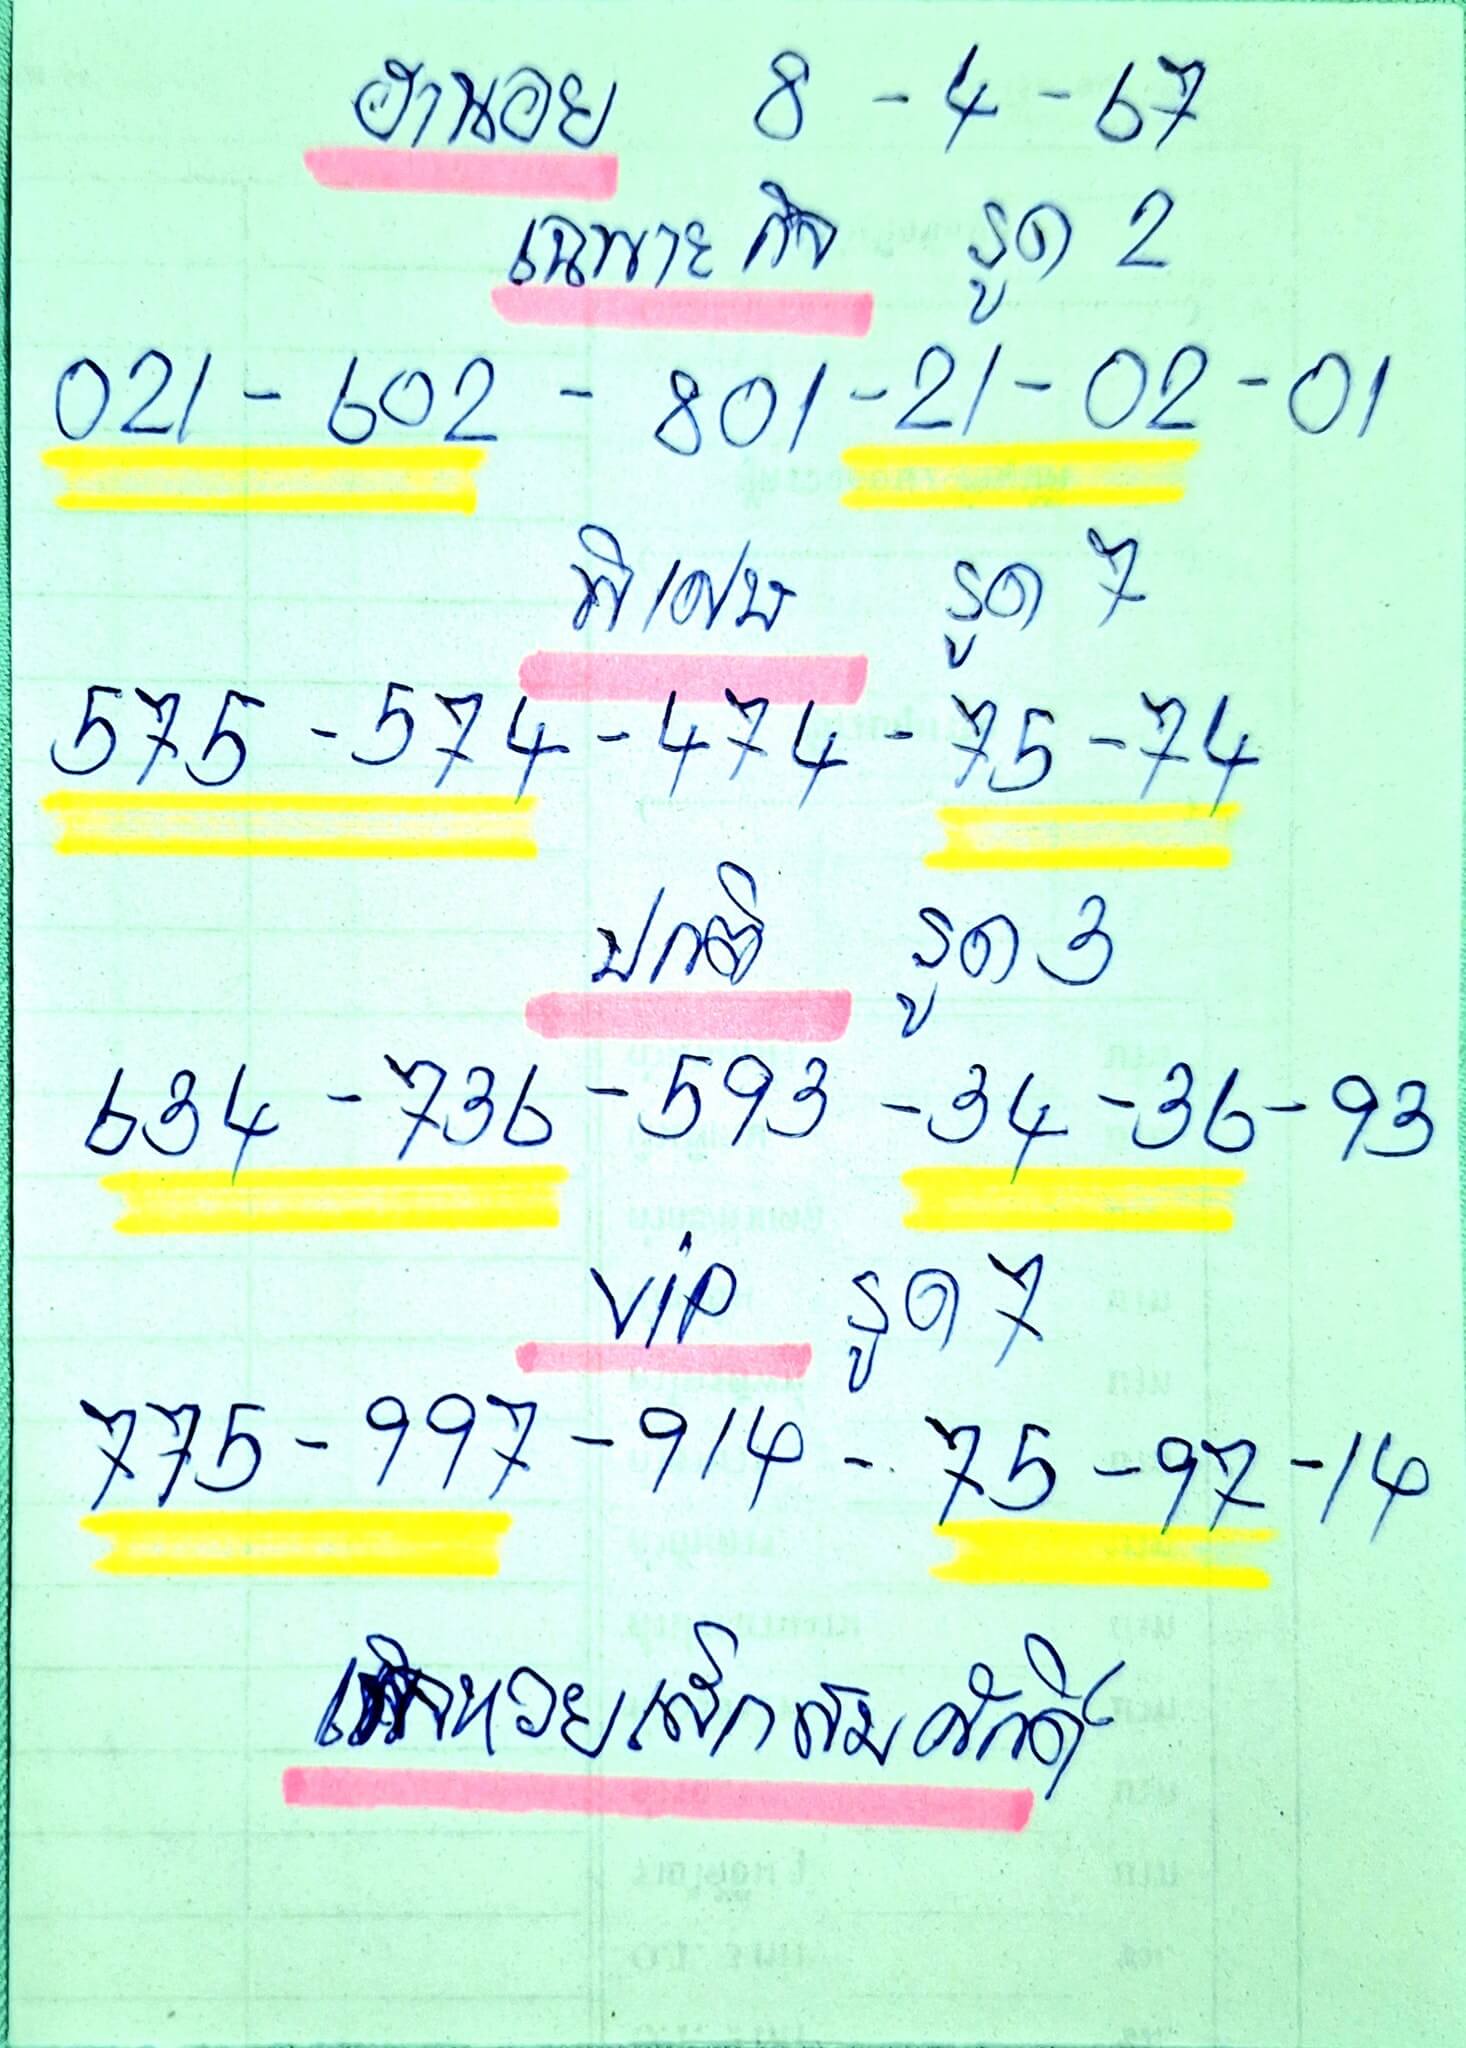 ฮานอย 8 - 4 - 67
เฉพาะกิจ รูด 2
021 - 602 - 801 - 21 - 02 - 01
พิเศษ รูด 7
575 - 574 - 474 - 75 - 74
ปกติ รูด 3
634 - 736 - 593 - 34 - 36 - 93
vip รูด 7
775 - 997 - 914 - 75 - 97 - 14
หวยเล็กสมศักดิ์